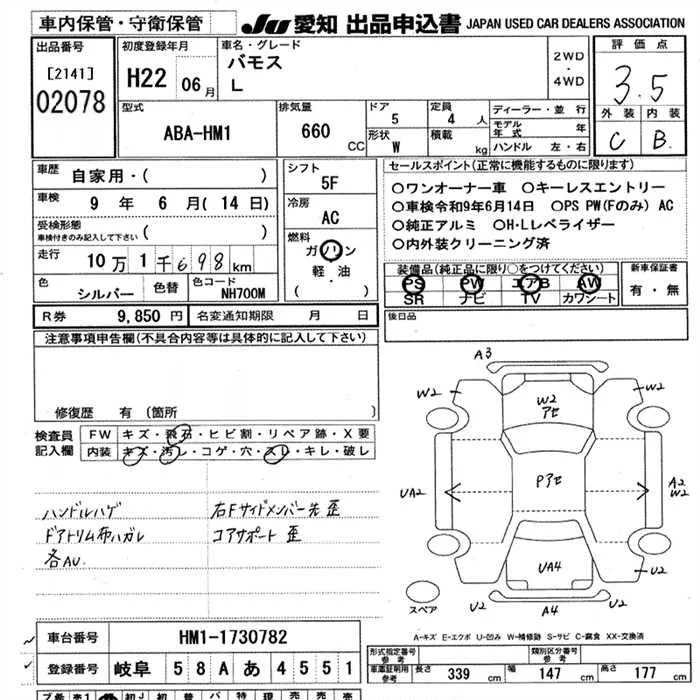 車内保管・守衛保管 JU 愛知 出品申込書 JAPAN USED CAR DEALERS ASSOCIATION
出品番号 [2141] 02078
初度登録年月 H22 06月
車名・グレード バモス L
2WD・4WD
評価点 3.5
外装 C 内装 B
型式 ABA-HM1
排気量 660 CC
ドア 5 定員 4人
形状 W 積載 kg
ディーラー・並行
モデル年式 年
ハンドル 左・右
車歴 自家用・( )
車検 9年 6月(14日)
受検形態 車検付きのみ記入して下さい ( )
走行 10万1千698km
色 シルバー 色替 色コード NH700M
シフト 5F
冷房 AC
燃料 ガソリン 軽・油 ( )
セールスポイント(正常に機能するものに限ります)
○ワンオーナー車 ○キーレスエントリー
○車検令和9年6月14日 ○PS PW(Fのみ) AC
○純正アルミ ○H・Lレベライザー
○内外装クリーニング済
装備品(純正品に限り○をつけてください)
PS PW エアB AW
SR ナビ TV カワシート
新車保証書 有・無
R券 9,850円 名変通知期限 月 日
後日品
注意事項申告欄(不具合内容等は具体的に記入して下さい)
修復歴 有 (箇所 )
検査員記入欄
FW キズ・飛石・ヒビ割・リペア跡・X要
内装 キズ・汚レ・コゲ・穴・スレ・キレ・破レ
ハンドルハゲ
ドアトリム布ハガレ
各AU
右Fサイドメンバー先 歪
コアサポート 歪
A3
W2 W2
W2 アセ
UA2 Pアセ A2 W2
UA4
U2 A4 U2 U2
スペア
A-キズ E-エクボ U-凹み W-補修跡 S-サビ C-腐食 XX-交換済
車台番号 HM1-1730782
登録番号 岐阜 58A あ 4551
形式指定番号 参考 類別区分番号 参考
車庫証明用 参考 長さ 339 cm 幅 147 cm 高さ 177 cm